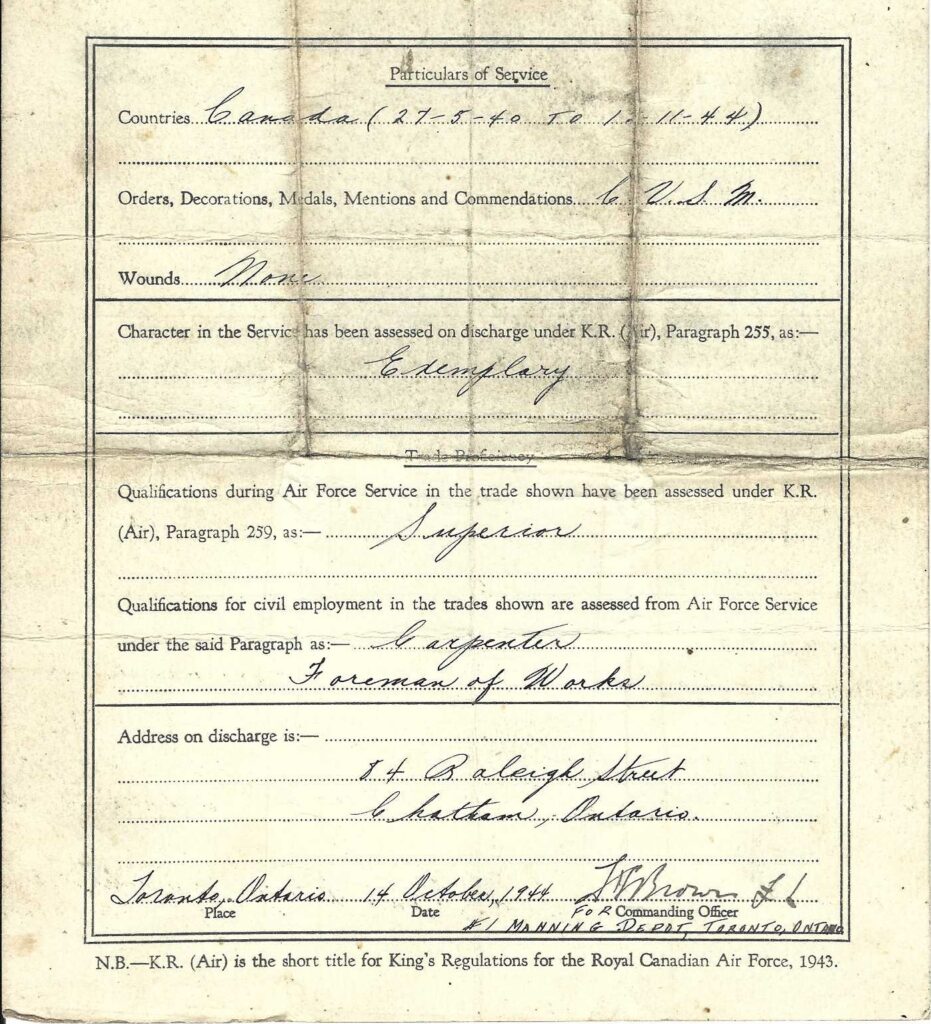 Particulars of Service
Countries Canada (27-5-40 TO 1-11-44)
Orders, Decorations, Medals, Mentions and Commendations C.V.S.M.
Wounds None
Character in the Service has been assessed on discharge under K.R. (Air), Paragraph 255, as:—
Exemplary
Trade Proficiency
Qualifications during Air Force Service in the trade shown have been assessed under K.R.
(Air), Paragraph 259, as:— Superior
Qualifications for civil employment in the trades shown are assessed from Air Force Service
under the said Paragraph as:— Carpenter
Foreman of Works
Address on discharge is:—
84 Raleigh Street
Chatham, Ontario.
Toronto, Ontario 14 October, 1944 Brown F L
Place Date FOR Commanding Officer
#1 MANNING DEPOT, TORONTO, ONTARIO
N.B.—K.R. (Air) is the short title for King's Regulations for the Royal Canadian Air Force, 1943.